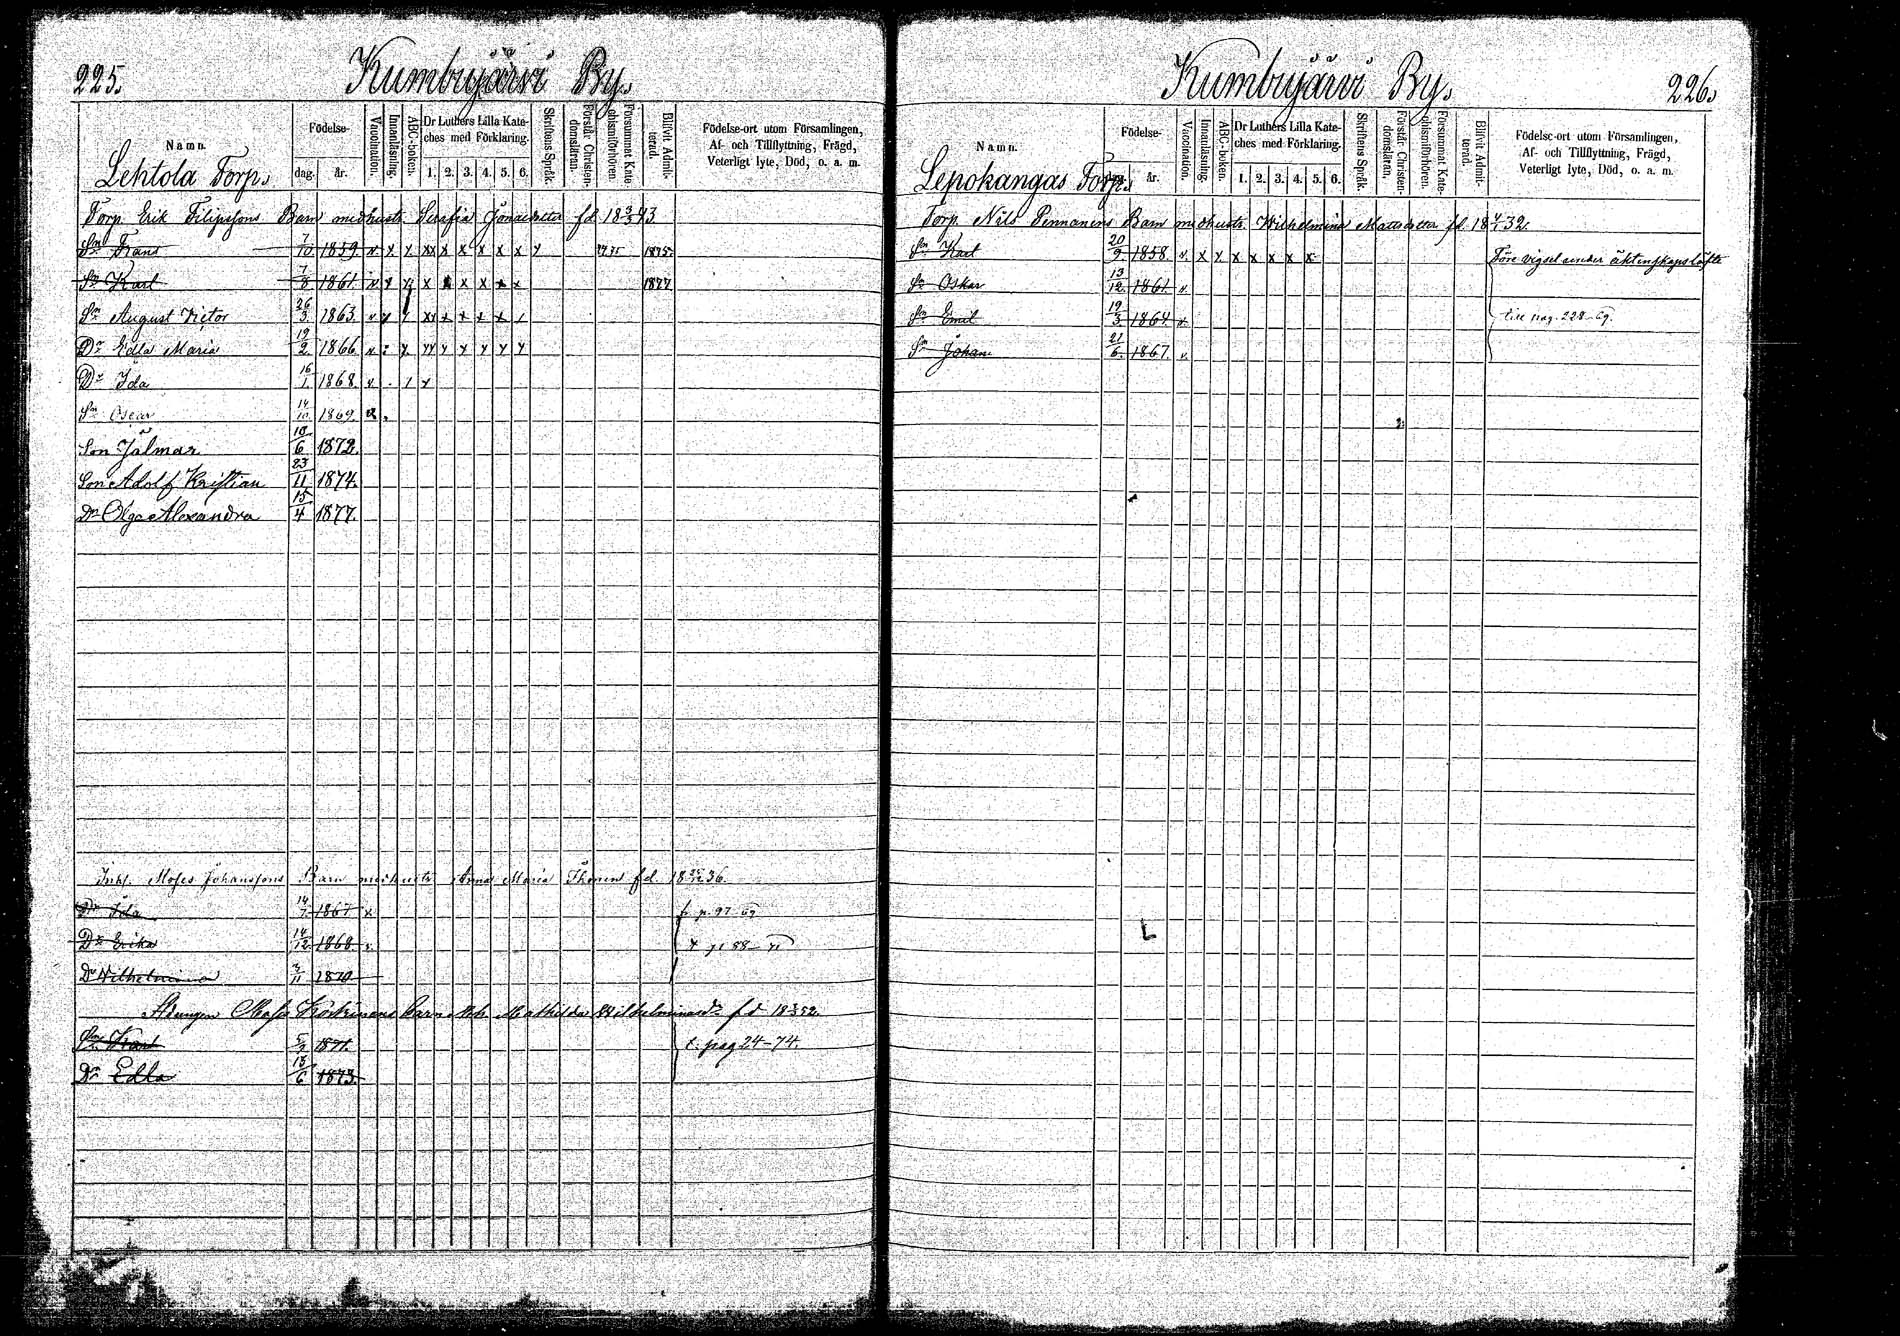 225.
Kumbujärvi By.
Namn.
Födelse-
dag. år.
Vaccination.
Innanläsning.
ABC-boken.
Dr Luthers Lilla Kate-
ches med Förklaring.
1. 2. 3. 4. 5. 6.
Skriftens Språk.
Förstår Christen-
domsläran.
Försummat Kate-
chismiförhören.
Blifvit Admit-
terad.
Födelse-ort utom Församlingen,
Af- och Tillflyttning, Frägd,
Veterligt lyte, Död, o. a. m.
Lehtola Torp.
Torp. Erik Filipssons Barn med hustr. Serafia Jonaedotter fd.
Sn Frans 7/10 1859. v. x x xx x x x x x x 1875.
Sn Karl 7/8 1861. v x x x x x x x 1877
Sn August Victor 26/3. 1863. v x
Dr Edla Maria 19/2. 1866. v.
Dr Ida 16/1. 1868. v.
Sn Oscar 14/10. 1869.
Son Jalmar 10/6 1872.
Son Adolf Kristian 23/11 1874.
Dr Olga Alexandra 15/4 1877.
Inh. Moses Johanssons Barn med hustr. Anna Maria Thonen fd. 36.
Dr Ida 14/7 1867 x f. p. 97-69
Dr Erika 14/12 1868. v.
Dr Wilhelmina 1870
Moses barn Mathilda Wilhelminasdr fd 52
Sn Karl 1871. t. pag 24-74.
Dr Edla 13/6 1873.
Kumbujärvi By.
226.
Namn.
Födelse-
dag. år.
Vaccination.
Innanläsning.
ABC-boken.
Dr Luthers Lilla Kate-
ches med Förklaring.
1. 2. 3. 4. 5. 6.
Skriftens Språk.
Förstår Christen-
domsläran.
Försummat Kate-
chismiförhören.
Blifvit Admit-
terad.
Födelse-ort utom Församlingen,
Af- och Tillflyttning, Frägd,
Veterligt lyte, Död, o. a. m.
Lepokangas Torp.
Torp. Nils Pennanens Barn med hustr. Wilhelmina Mattsdotter fd. 18 4/4 32.
Sn Karl 20/9. 1858. v. x x x x x x x Före vigsel under äktenskapslöfte
Sn Oskar 13/12. 1861. v.
Sn Emil 19/3. 1864. v. till pag. 228-69.
Sn Johan 21/6. 1867. v.